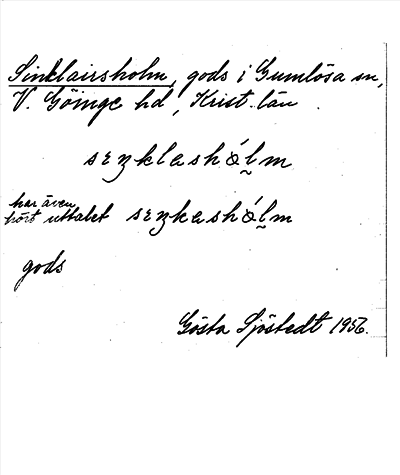 Sinklairsholm, gods i Gumlösa sn,
V. Göinge hd, Krist. län
seŋklashólm
har även
hört uttalet seŋkashólm
gods
Gösta Sjöstedt 1956.